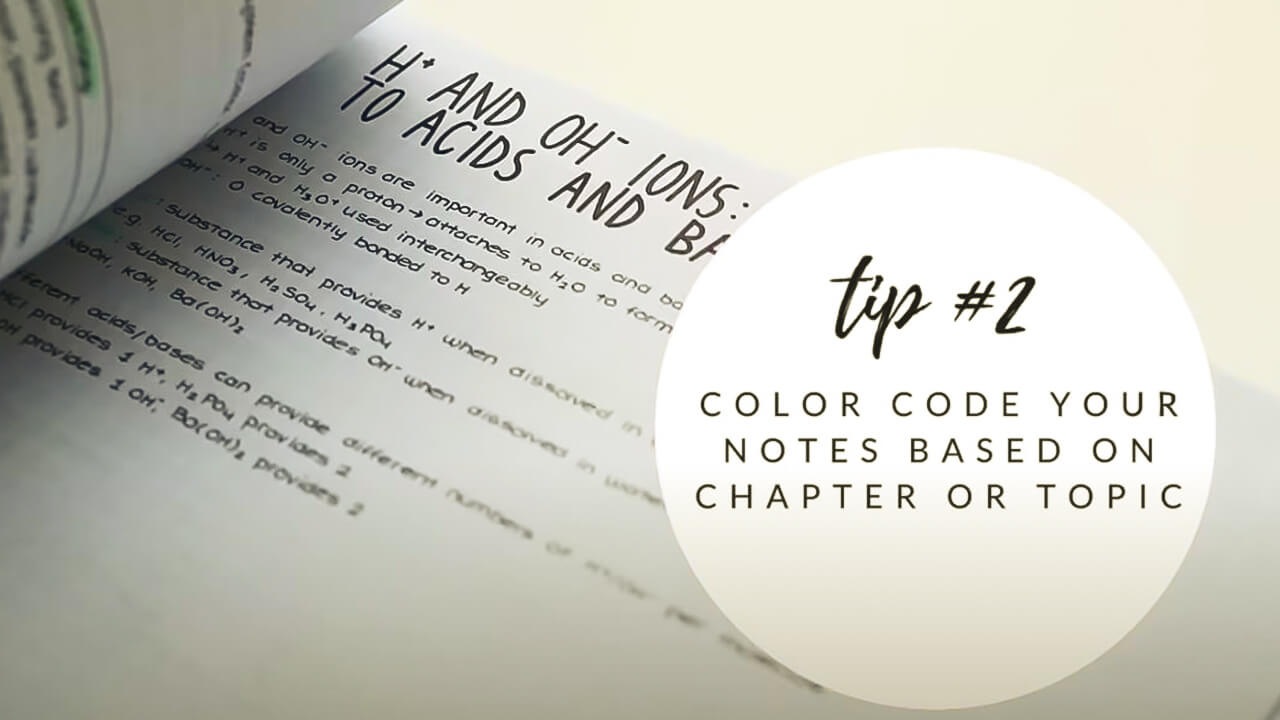 H⁺ AND OH⁻ IONS:
TO ACIDS AND
and OH⁻ ions are important in acids and
H⁺ is only a proton → attaches to H₂O to form
↳ H⁺ and H₃O⁺ used interchangeably
OH⁻: O covalently bonded to H
: substance that provides H⁺ when dissolved in
e.g. HCl, HNO₃, H₂SO₄, H₃PO₄
: substance that provides OH⁻ when dissolved in water
NaOH, KOH, Ba(OH)₂
acids/bases can provide different numbers of
HCl provides 1 H⁺, H₂PO₄ provides 2
provides 1 OH⁻, Ba(OH)₂ provides 2
tip #2
COLOR CODE YOUR
NOTES BASED ON
CHAPTER OR TOPIC